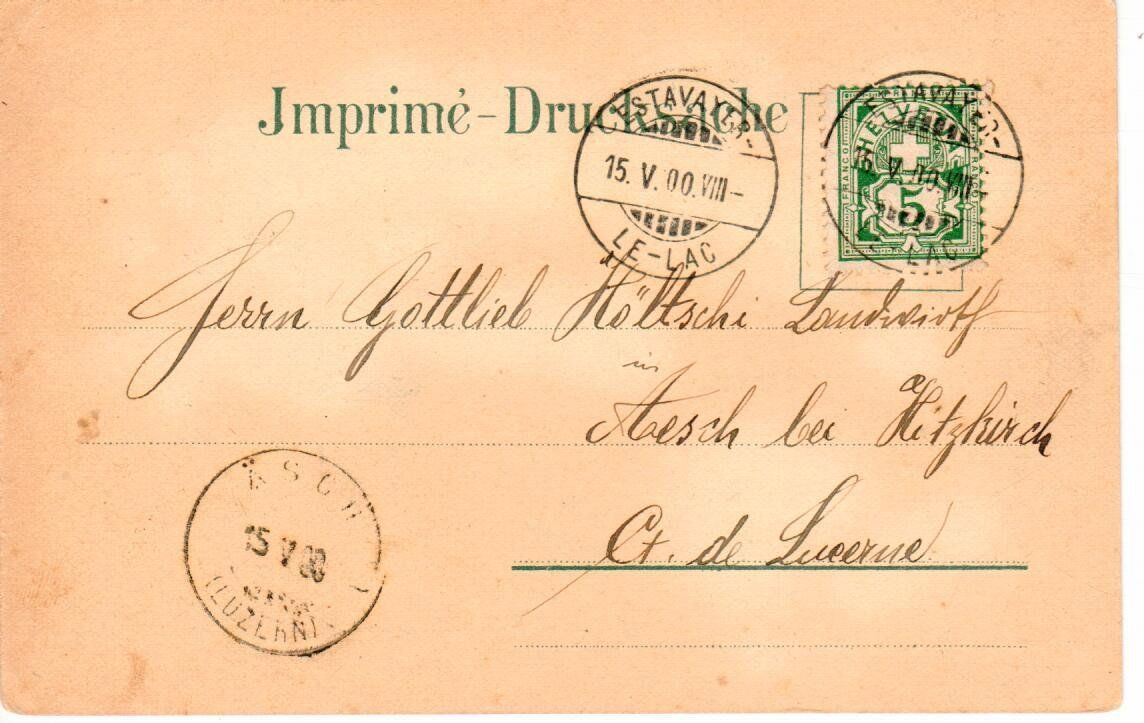 Imprimé-Drucksache
ESTAVAYER-
15. V. 00. VIII –
LE-LAC
ESTAVAYER-
HELVETIA
FRANCO
15. V. 00. VIII
5
LE-LAC
Herrn Gottlieb Höltschi Landwirth
in
Aesch bei Hitzkirch
Ct. de Lucerne
ÄSCH
15 V 00
(LUZERN)